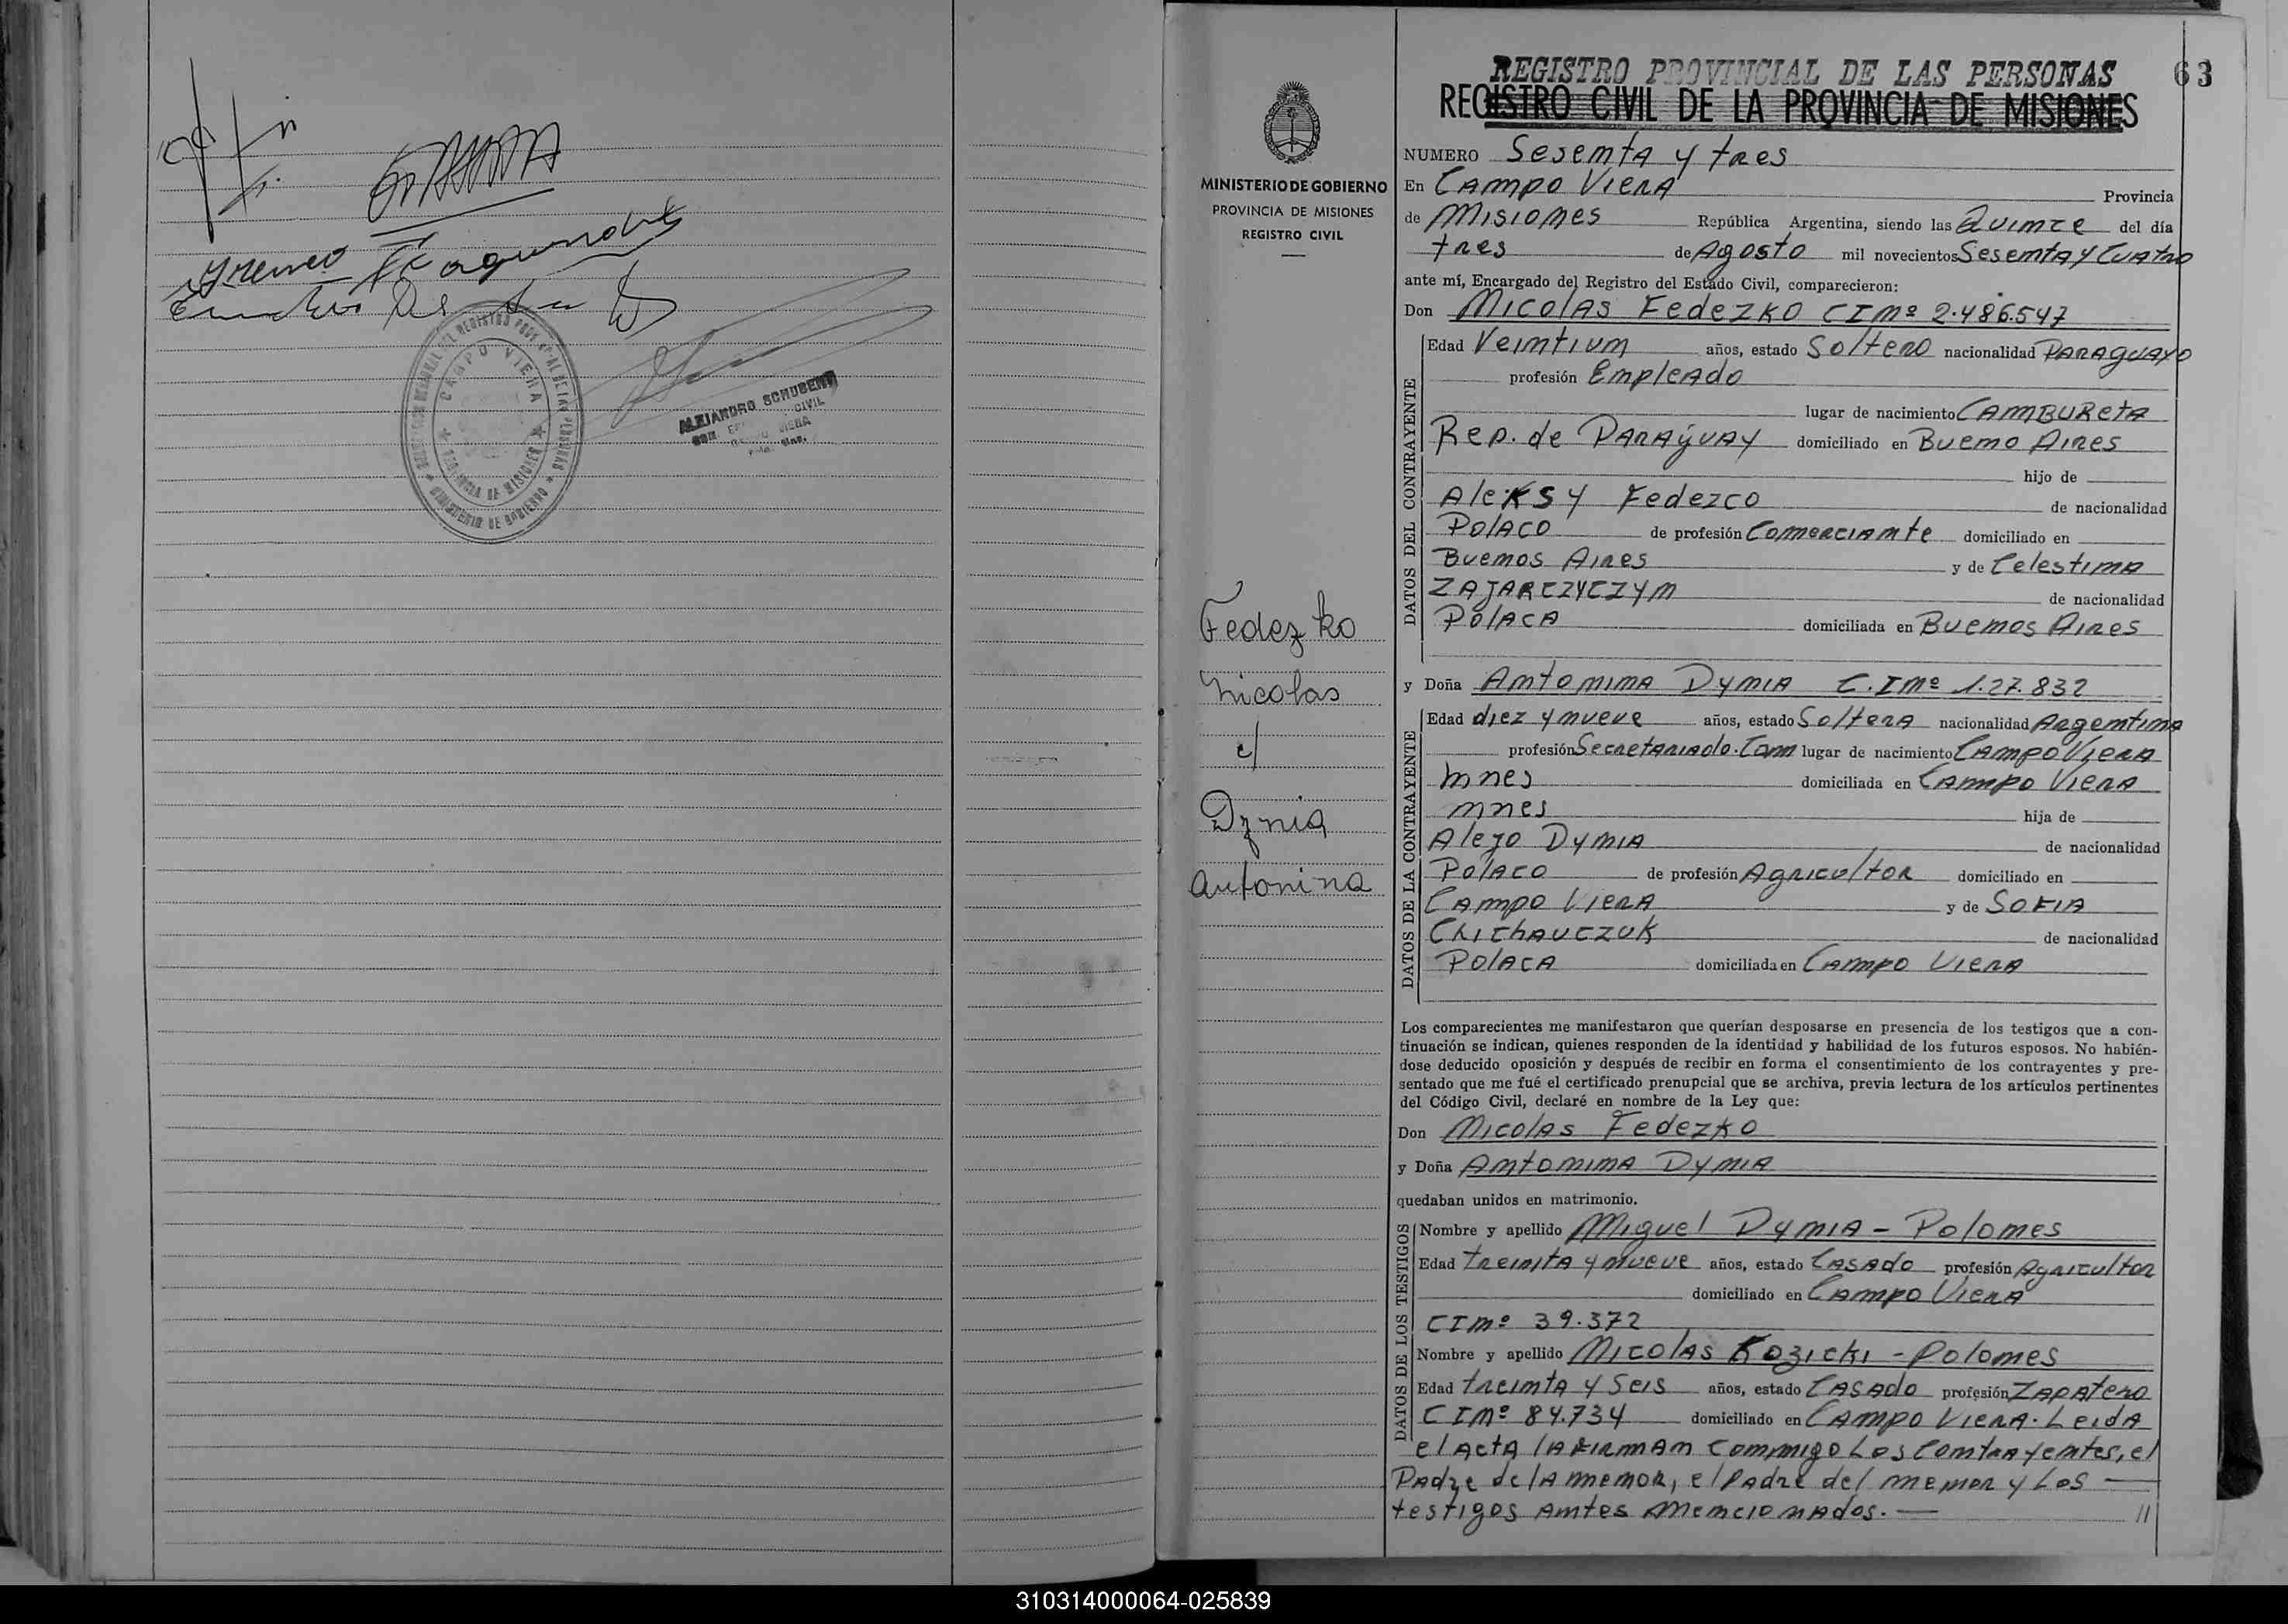 Ireneo Fagundez
MINISTERIO DE GOBIERNO
CAMPO VIERA
PROVINCIA DE MISIONES
ALEJANDRO SCHUBERT
CIVIL
63
REGISTRO PROVINCIAL DE LAS PERSONAS
REGISTRO CIVIL DE LA PROVINCIA DE MISIONES
MINISTERIO DE GOBIERNO
PROVINCIA DE MISIONES
REGISTRO CIVIL
Fedezko
Nicolas
c/
Dynia
Antonina
NUMERO Sesenta y tres
En Campo Viera Provincia
de Misiones República Argentina, siendo las Quince del día
tres de Agosto mil novecientos Sesenta y Cuatro
ante mí, Encargado del Registro del Estado Civil, comparecieron:
Don Nicolas Fedezko CI Nº 2.486.547
DATOS DEL CONTRAYENTE
Edad Veintiun años, estado Soltero nacionalidad Paraguayo
profesión Empleado
lugar de nacimiento Cambureta
Rep. de Paraguay domiciliado en Bueno Aires
hijo de
Aleksy Fedezco de nacionalidad
Polaco de profesión Comerciante domiciliado en
Buenos Aires y de Celestina
Zajarczyczyn de nacionalidad
Polaca domiciliada en Buenos Aires
y Doña Antonina Dynia C.I Nº 1.27.832
DATOS DE LA CONTRAYENTE
Edad diez y nueve años, estado Soltera nacionalidad Argentina
profesión Secretariado.Com lugar de nacimiento Campo Viera
Mnes domiciliada en Campo Viera
Mnes hija de
Alejo Dynia de nacionalidad
Polaco de profesión Agricultor domiciliado en
Campo Viera y de Sofia
Chichauczuk de nacionalidad
Polaca domiciliada en Campo Viera
Los comparecientes me manifestaron que querían desposarse en presencia de los testigos que a con-
tinuación se indican, quienes responden de la identidad y habilidad de los futuros esposos. No habién-
dose deducido oposición y después de recibir en forma el consentimiento de los contrayentes y pre-
sentado que me fué el certificado prenupcial que se archiva, previa lectura de los artículos pertinentes
del Código Civil, declaré en nombre de la Ley que:
Don Nicolas Fedezko
y Doña Antonina Dynia
quedaban unidos en matrimonio.
DATOS DE LOS TESTIGOS
Nombre y apellido Miguel Dynia - Polones
Edad treinta y nueve años, estado Casado profesión Agricultor
domiciliado en Campo Viera
CI Nº 39.372
Nombre y apellido Nicolas Kozicki - Polones
Edad treinta y seis años, estado Casado profesión Zapatero
CI Nº 84.734 domiciliado en Campo Viera. Leida
el Acta la firman conmigo Los Contrayentes, el
Padre de la menor, el Padre del menor y Los
testigos antes mencionados. — //
310314000064-025839